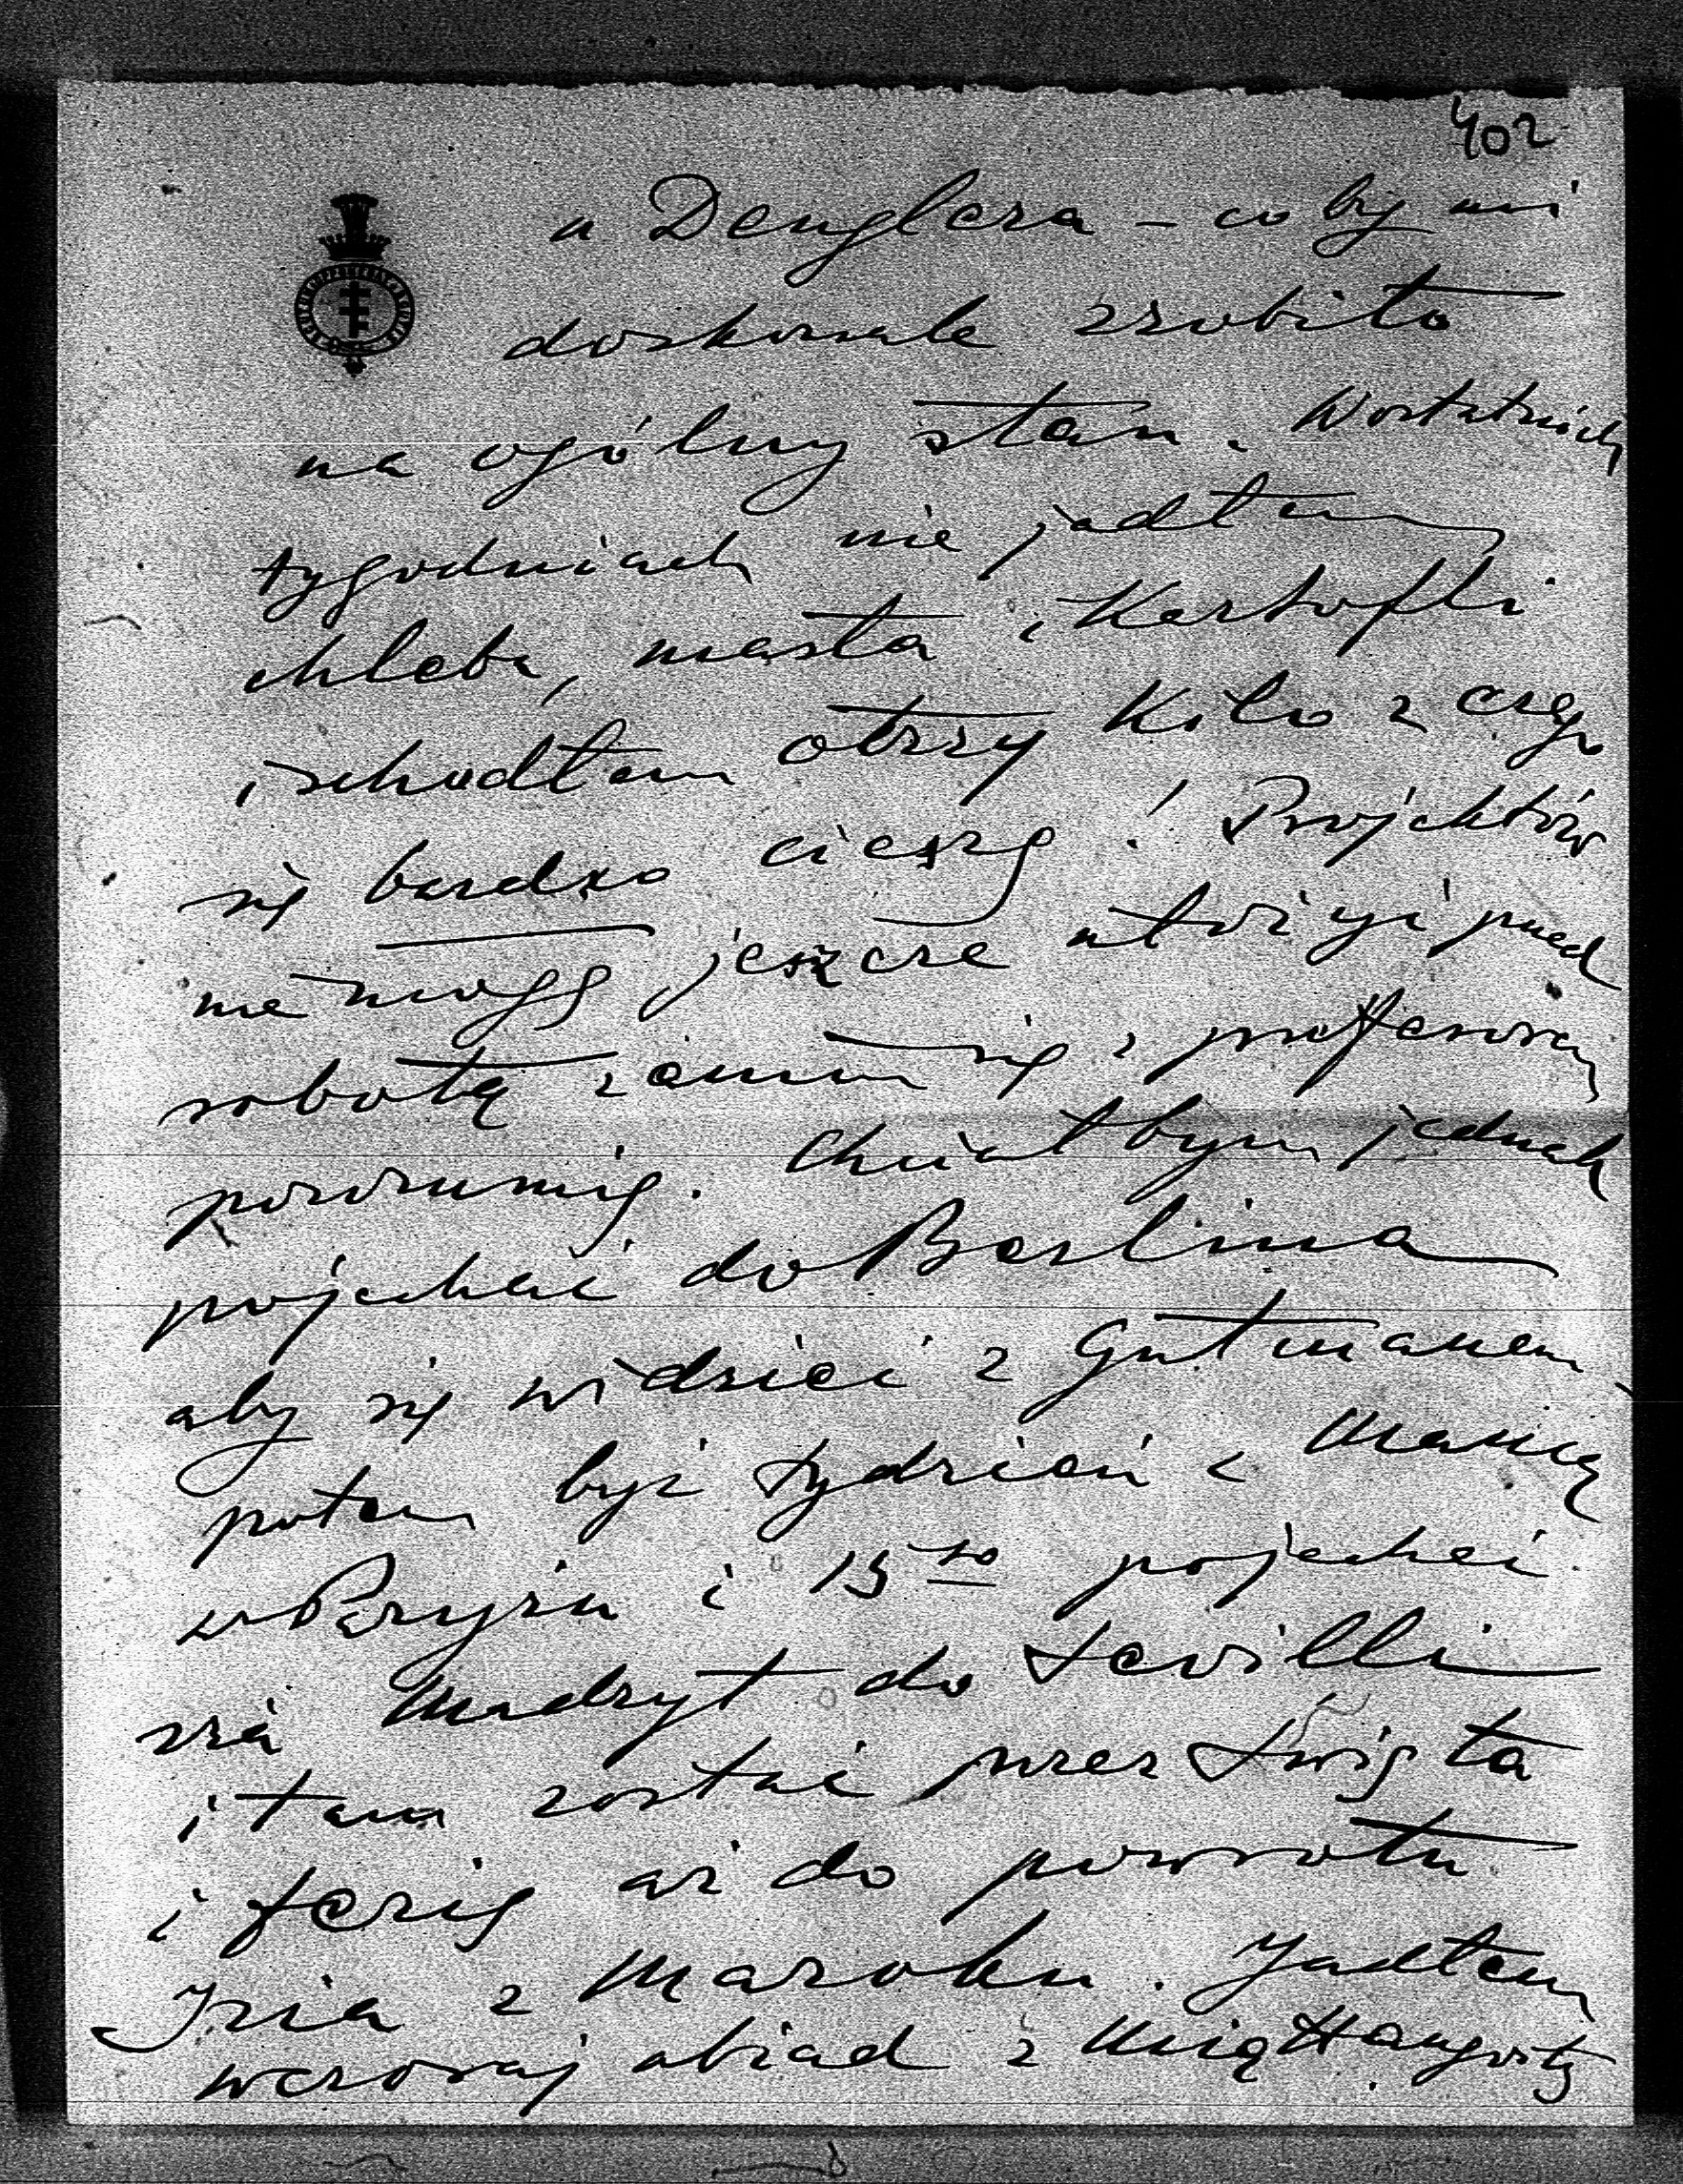 402
u Denglera – co by mi
doskonale zrobiło
na ogólny stan. W ostatnich
tygodniach nie jadłem
chleba, masła i Kartofli
i schudłem o trzy Kilo z czego
się bardzo cieszę! Projektów
nie mogę jeszcze utożyć przed
robotą zanim się z profesorem
porozumię. Chciałbym jednak
pojechać do Berlina
aby się widzieć z Gutmanem
potem być tydzień z Manią
w Paryżu i 15go pojechać
via Madryt do Sevilli
i tam zostać przez Święta
i ferię aż do powrotu
Izia z Maroku. Jadłem
wczoraj obiad z